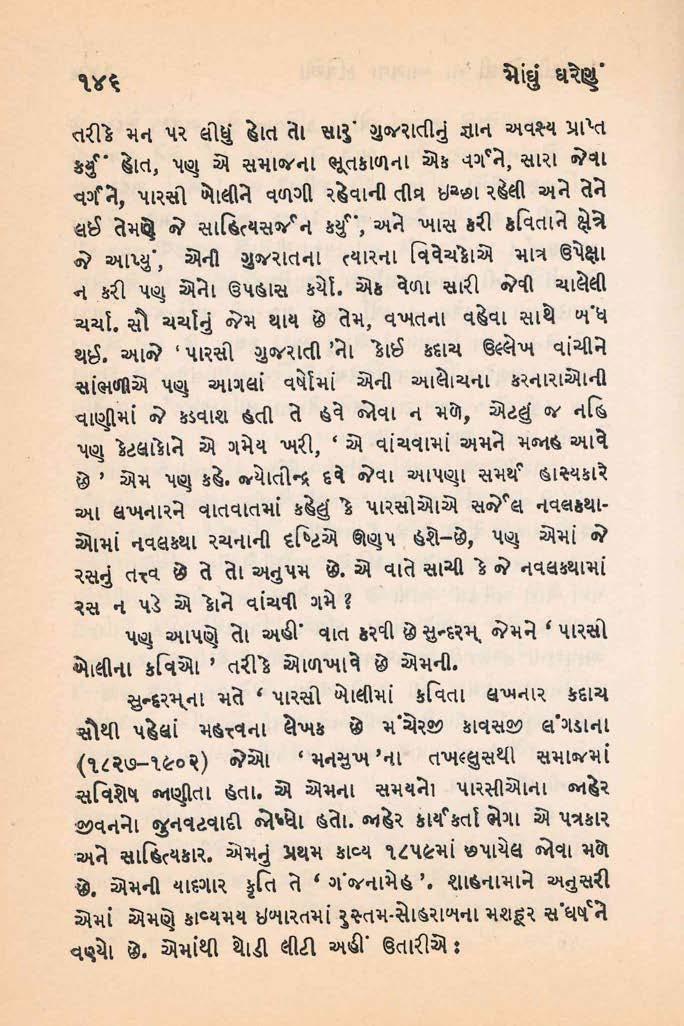 ૧૪૬ મોંઘું ઘરેણું
તરીકે મન પર લીધું હોત તો સારું ગુજરાતીનું જ્ઞાન અવશ્ય પ્રાપ્ત
કર્યું હોત, પણ એ સમાજના ભૂતકાળના એક વર્ગને, સારા જેવા
વર્ગને, પારસી બોલીને વળગી રહેવાની તીવ્ર ઇચ્છા રહેલી અને તેને
લઈ તેમણે જે સાહિત્યસર્જન કર્યું, અને ખાસ કરી કવિતાને ક્ષેત્રે
જે આપ્યું, એની ગુજરાતના ત્યારના વિવેચકોએ માત્ર ઉપેક્ષા
ન કરી પણ એનો ઉપહાસ કર્યો. એક વેળા સારી જેવી ચાલેલી
ચર્ચા. સૌ ચર્ચાનું જેમ થાય છે તેમ, વખતના વહેવા સાથે બંધ
થઈ. આજે ‘પારસી ગુજરાતી’નો કોઈ કદાચ ઉલ્લેખ વાંચીને
સાંભળીએ પણ આગલાં વર્ષોમાં એની આલોચના કરનારાઓની
વાણીમાં જે કડવાશ હતી તે હવે જોવા ન મળે, એટલું જ નહિ
પણ કેટલાકોને એ ગમેય ખરી, ‘એ વાંચવામાં અમને મજાહ આવે
છે’ એમ પણ કહે. જ્યોતીન્દ્ર દવે જેવા આપણા સમર્થ હાસ્યકારે
આ લખનારને વાતવાતમાં કહેલું કે પારસીઓએ સર્જેલ નવલકથા-
ઓમાં નવલકથા રચનાની દૃષ્ટિએ ઊણપ હશે–છે, પણ એમાં જે
રસનું તત્ત્વ છે તે તો અનુપમ છે. એ વાતે સાચી કે જે નવલકથામાં
રસ ન પડે એ કોને વાંચવી ગમે ?
પણ આપણે તો અહીં વાત કરવી છે સુન્દરમ્ જેમને ‘પારસી
બોલીના કવિઓ’ તરીકે ઓળખાવે છે એમની.
સુન્દરમ્‌ના મતે ‘પારસી બોલીમાં કવિતા લખનાર કદાચ
સૌથી પહેલાં મહત્ત્વના લેખક છે મંચેરજી કાવસજી લંગડાના
(૧૮૨૭–૧૯૦૨) જેઓ ‘મનસુખ’ના તખલ્લુસથી સમાજમાં
સવિશેષ જાણીતા હતા. એ એમના સમયનો પારસીઓના જાહેર
જીવનનો જુનવટવાદી જોધ્ધો હતો. જાહેર કાર્યકર્તા ભેગા એ પત્રકાર
અને સાહિત્યકાર. એમનું પ્રથમ કાવ્ય ૧૮૫૯માં છપાયેલ જોવા મળે
છે. એમની યાદગાર કૃતિ તે ‘ગંજનામેહ’. શાહનામાને અનુસરી
એમાં એમણે કાવ્યમય ઇબારતમાં રુસ્તમ-સોહરાબના મશહૂર સંઘર્ષને
વણ્યો છે. એમાંથી થોડી લીટી અહીં ઉતારીએ :